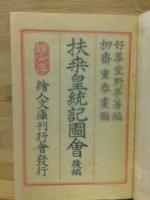 好華堂野亭著編
柳齋重春畫圖
扶桑皇統記圖會 後編
繪入文庫刊行會發行